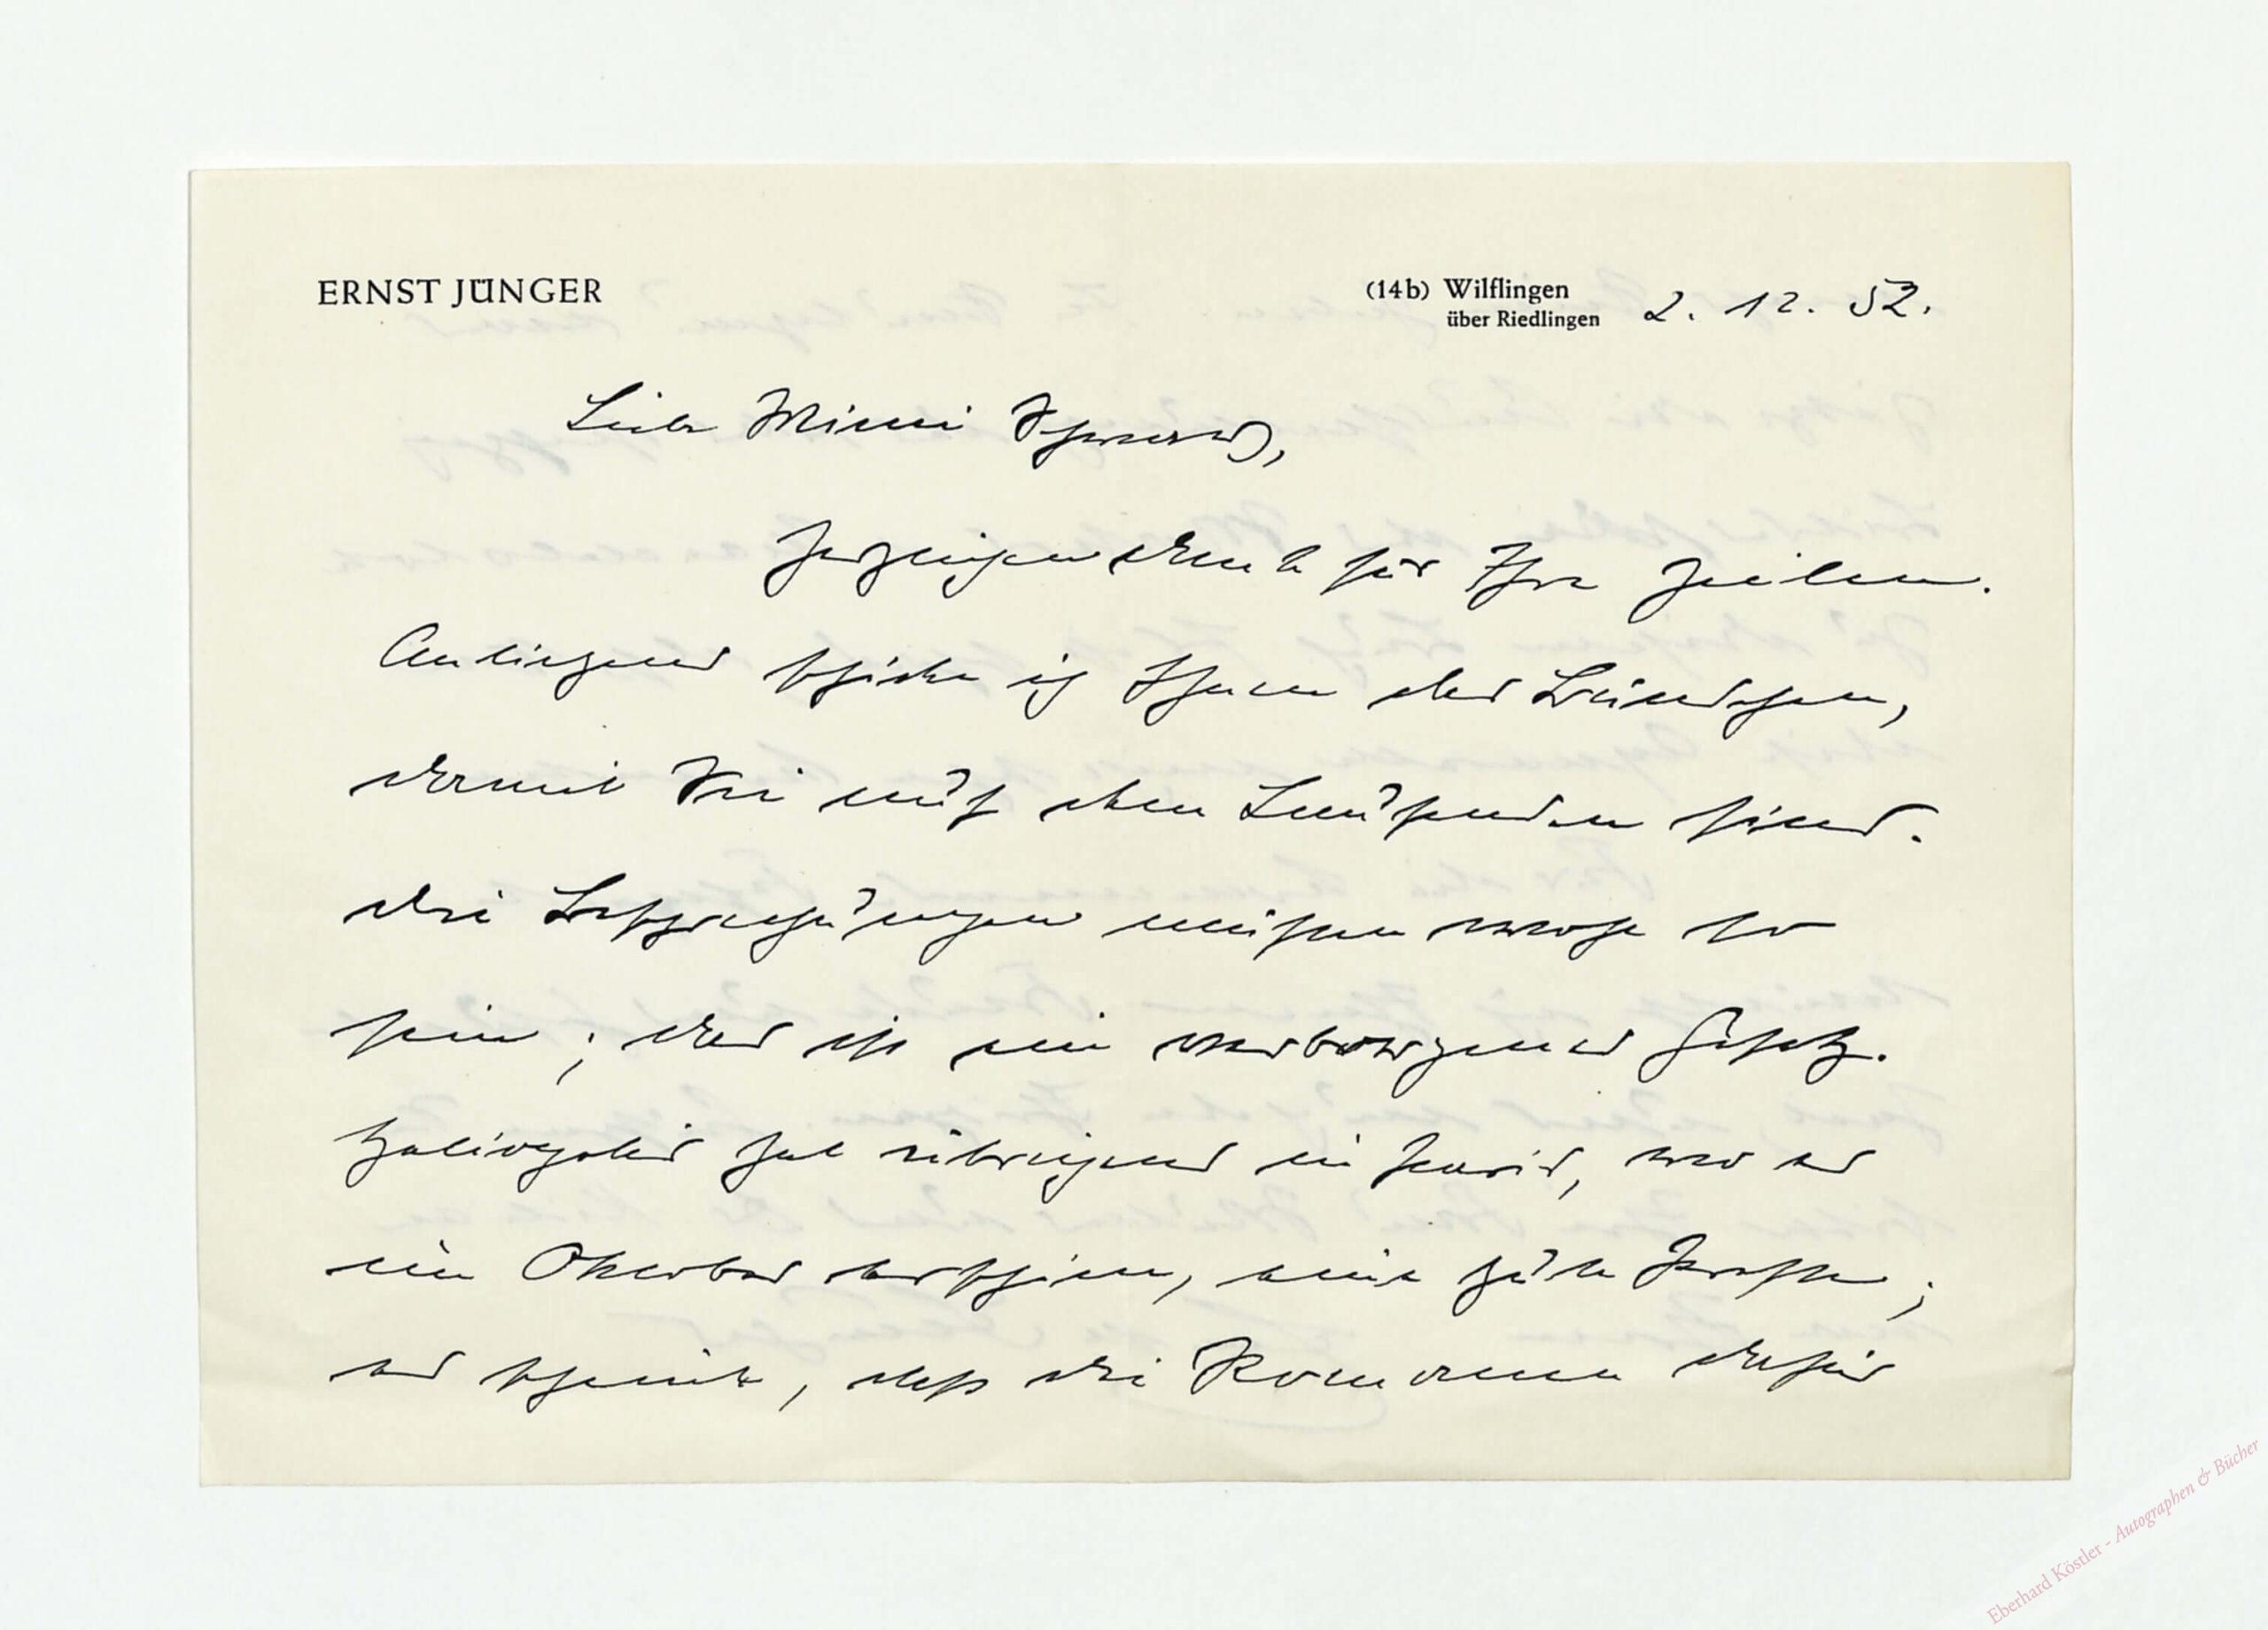 ERNST JÜNGER
(14b) Wilflingen
über Riedlingen
2. 12. 52.
Liebe Mimi
herzlichen Dank für Ihre Zeilen.
Anliegend schicke ich Ihnen das Bändchen,
damit Sie auf dem Laufenden sind.
Die Besprechungen müssen wohl so
sein; das ist ein verborgenes Gesetz.
Heliopolis hat übrigens in Paris, wo es
im Oktober erschien, eine gute Presse;
es scheint, daß die Romanen dafür
Eberhard Köstler - Autographen & Bücher